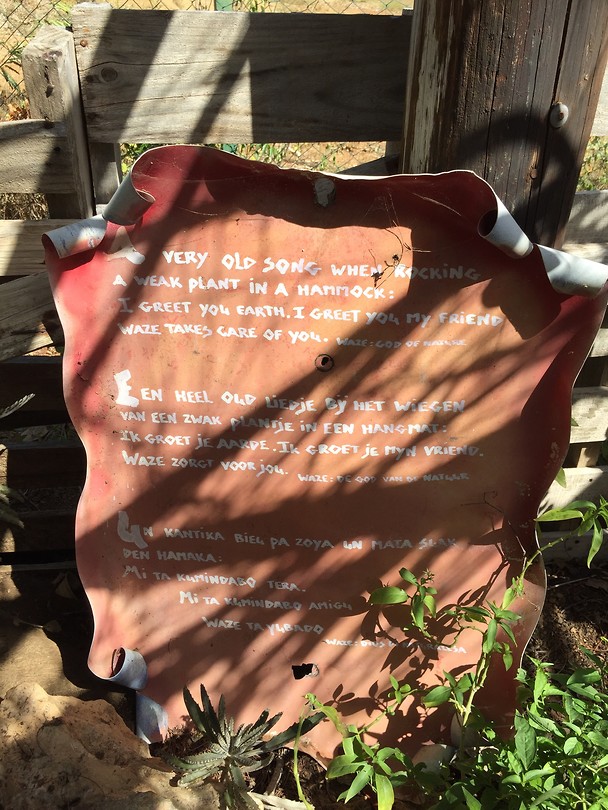 A VERY OLD SONG WHEN ROCKING
A WEAK PLANT IN A HAMMOCK:
I GREET YOU EARTH. I GREET YOU MY FRIEND
WAZE TAKES CARE OF YOU. WAZE: GOD OF NATURE
EEN HEEL OUD LIEDJE BY HET WIEGEN
VAN EEN ZWAK PLANTJE IN EEN HANGMAT:
IK GROET JE AARDE. IK GROET JE MYN VRIEND.
WAZE ZORGT VOOR JOU. WAZE: DE GOD VAN DE NATUUR
UN KANTIKA BIEU PA ZOYA UN MATA SUAK
DEN HAMAKA:
MI TA KUMINDABO TERA.
MI TA KUMINDABO AMIGU
WAZE TA YUDABO
WAZE: